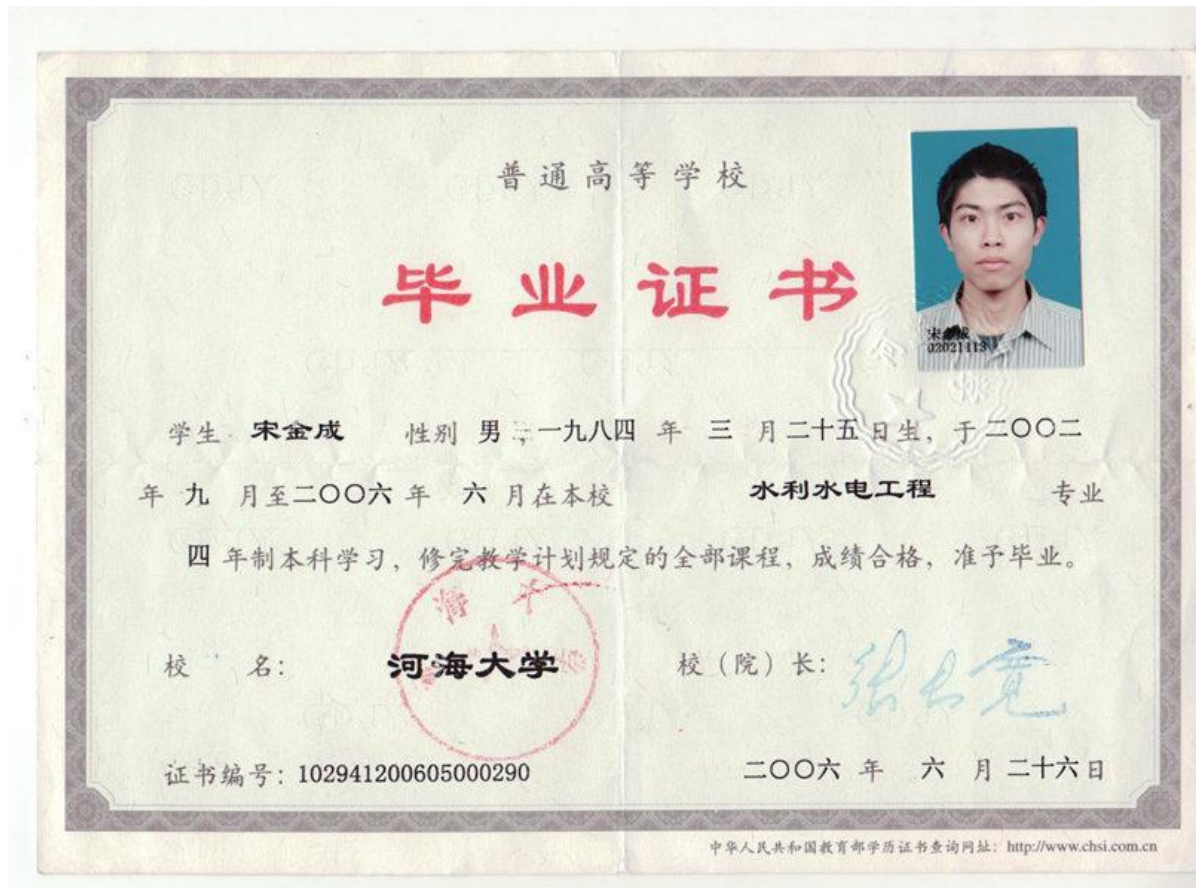 普通高等学校
毕业证书
宋金成
02021113
学生 宋金成 性别 男，一九八四 年 三 月二十五日生，于二〇〇二
年 九 月至二〇〇六 年 六 月在本校 水利水电工程 专业
四 年制本科学习，修完教学计划规定的全部课程，成绩合格，准予毕业。
校 名：河海大学 校（院）长：张长宽
证书编号：102941200605000290 二〇〇六 年 六 月 二十六日
中华人民共和国教育部学历证书查询网址：http://www.chsi.com.cn